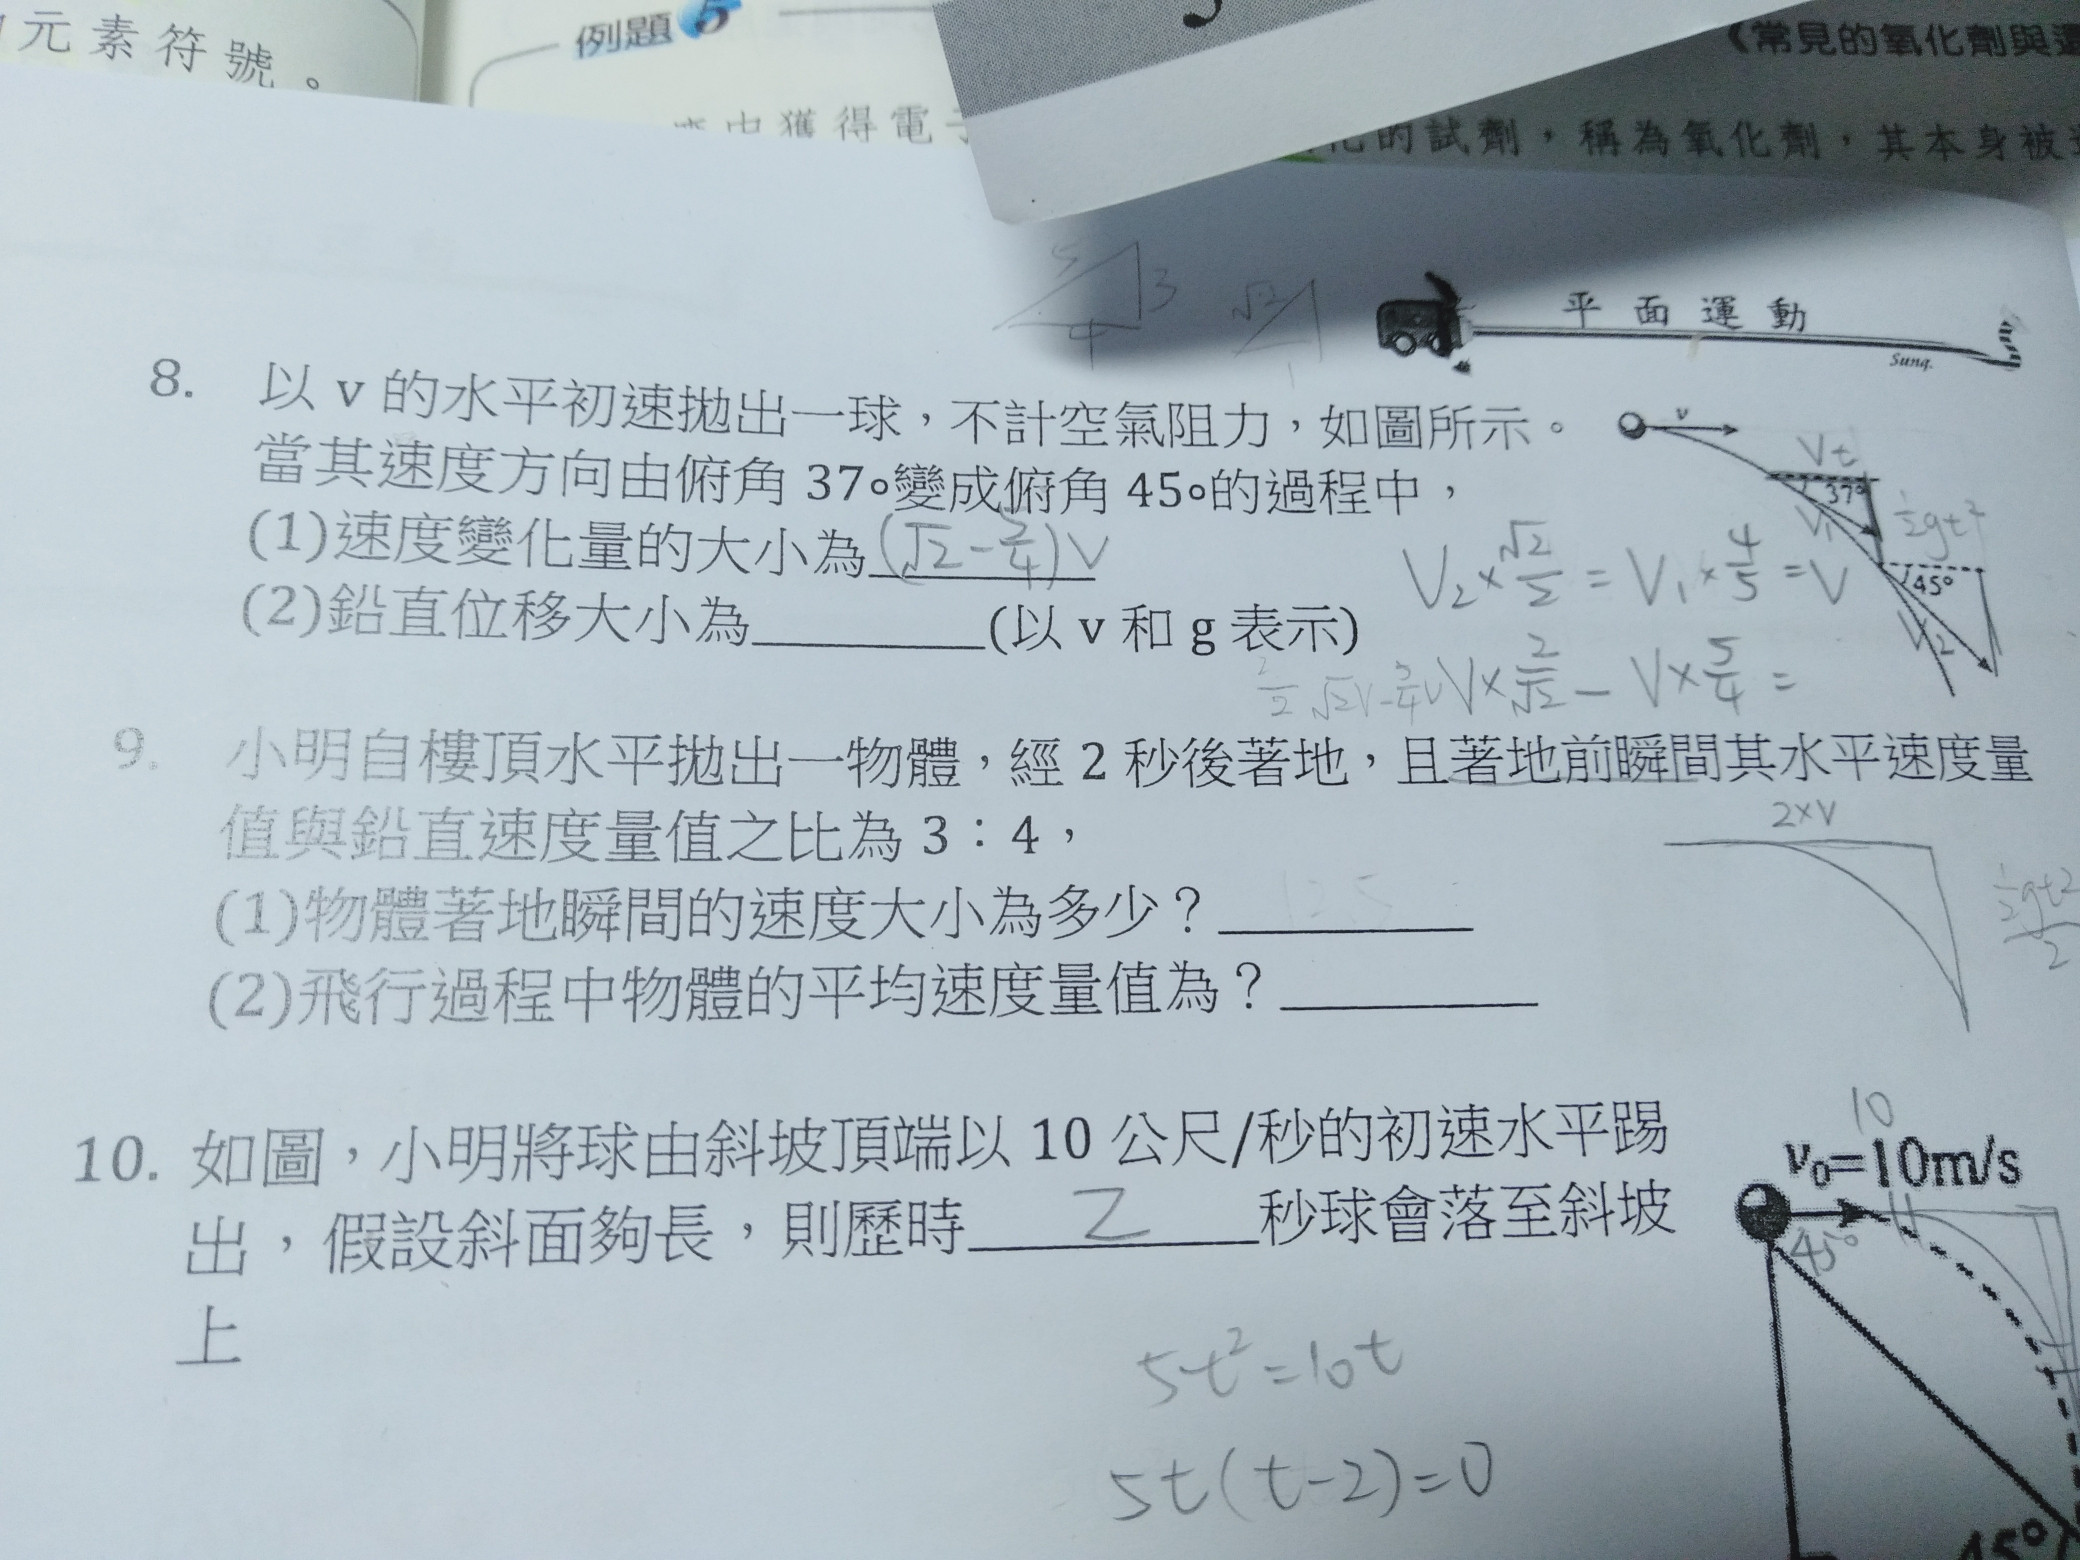 元素符號。
例題 5
中獲得電
《常見的氧化劑與
的試劑，稱為氧化劑，其本身被
5
3
4
√2
1
1
平面運動
Sunq.
8. 以 v 的水平初速拋出一球，不計空氣阻力，如圖所示。
當其速度方向由俯角 37∘變成俯角 45∘的過程中，
(1)速度變化量的大小為(√2-5/4)V
(2)鉛直位移大小為________(以 v 和 g 表示)
v
Vt
37°
V1
½gt²
45°
V2
V2×√2/2=V1×4/5=V
√2V-5/4V
V×2/√2-V×5/4=
9. 小明自樓頂水平拋出一物體，經 2 秒後著地，且著地前瞬間其水平速度量
值與鉛直速度量值之比為 3：4，
2×V
½gt²
2
(1)物體著地瞬間的速度大小為多少？________
(2)飛行過程中物體的平均速度量值為？________
10. 如圖，小明將球由斜坡頂端以 10 公尺/秒的初速水平踢
出，假設斜面夠長，則歷時 2 秒球會落至斜坡
上
10
v0=10m/s
45°
5t²=10t
5t(t-2)=0
45°